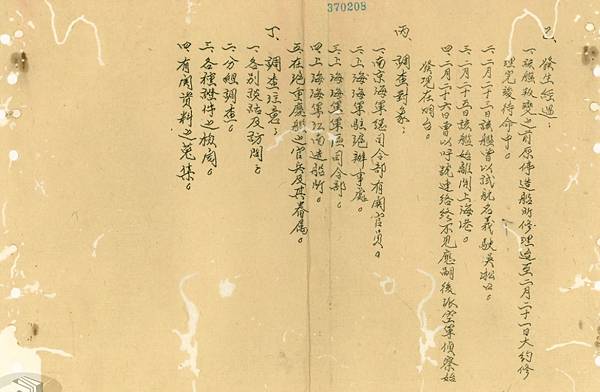 370208
乙、發生經過:
一、該艦叛變之前原停造船所修理迨至二月二十一日大約修
理完竣待命中。
二、二月二十三日該艦曾以試航名義駛吳淞口。
三、二月二十五日該艦始離開上海港。
四、二月二十六日曾以呼號連絡終不見應嗣後派空軍偵察始
發現在烟台。
丙、調查對象:
一、南京海軍總司令部有關官員。
二、上海海軍駐滬辦事處。
三、上海海軍軍區司令部。
四、上海海軍江南造船所。
五、在滬重慶艦之官兵及其眷屬。
丁、調查注意:
一、各別談話及訪問。
二、分組調查。
三、各種証件之檢閱。
四、有關資料之蒐集。